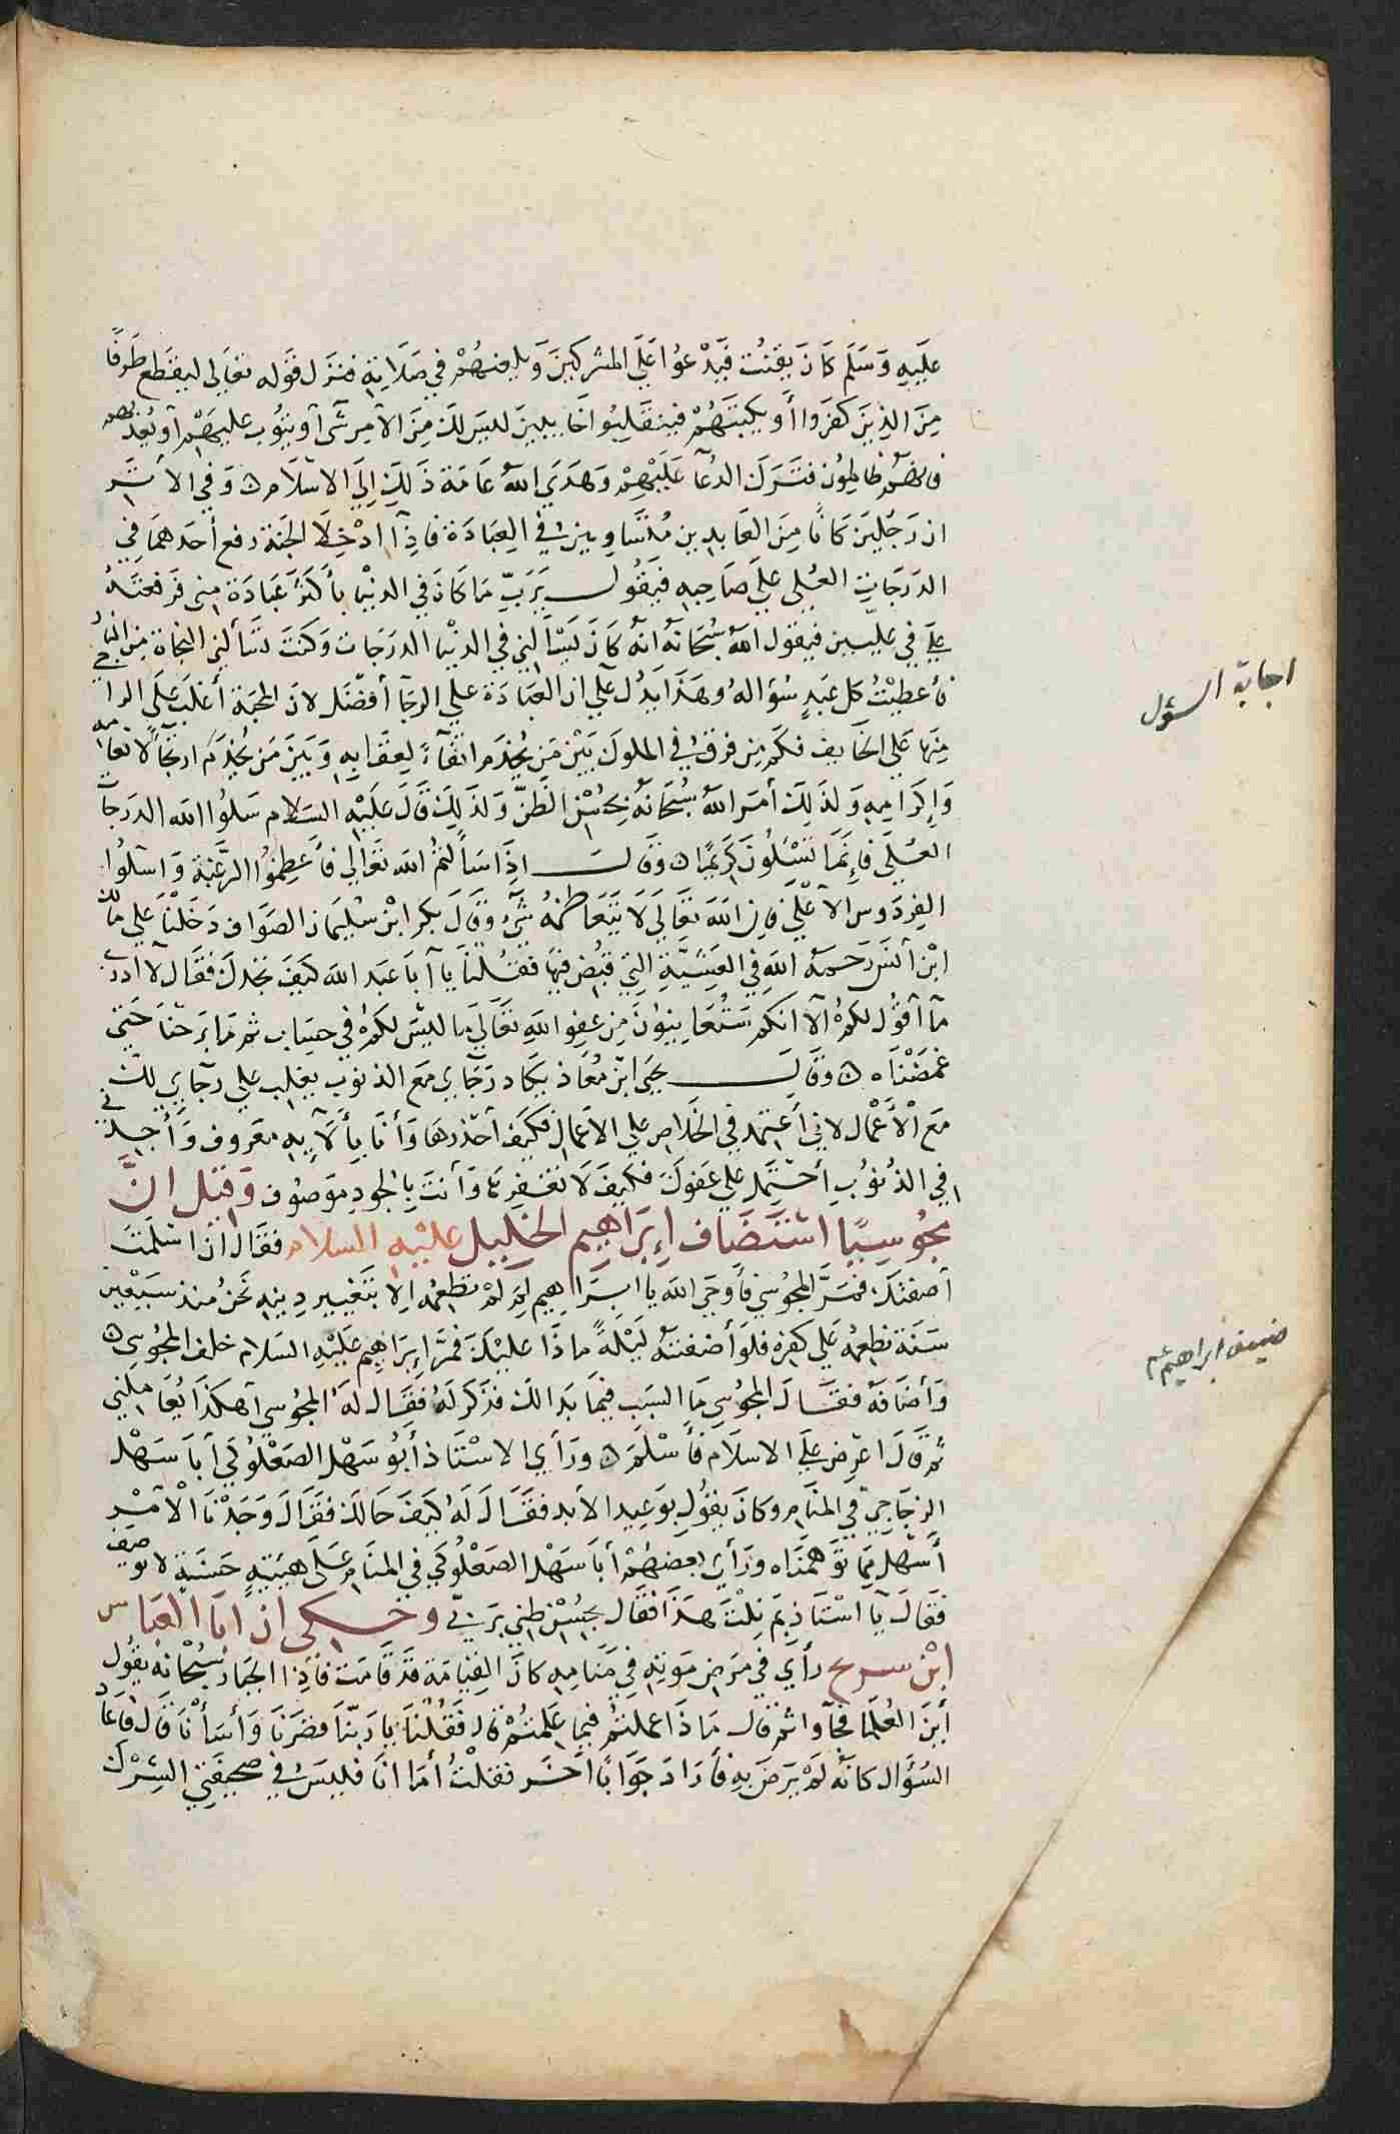 عليه وسلم كان يقنت فيدعوا علي المشركين ويلعنهم في صلاته فنزل قوله تعالي ليقطع طرفا
من الذين كفروا أو يكبتهم فينقلبوا خايبين ليس لك من الأمر شئ أو يتوب عليهم أو يعذبهم
فانهم ظالمون فترك الدعا عليهم وهدي الله عامة ذلك إلي الاسلام وفي الأثر
ان رجلين كانا من العابدين متساويين في العبادة فاذا ادخلا الجنة رفع أحدهما في
الدرجات العلي علي صاحبه فيقول يرب ما كان في الدنيا بأكثر عبادة مني فرفعته
علي في عليين فيقول الله سبحانه انه كان يسألني في الدنيا الدرجات وكنت تسألني النجاة من النار
فأعطيت كل عبد سؤاله وهذا يدل علي ان العبادة علي الرجا أفضل لان المحبة أغلب علي الراجي
منها علي الخايف فكم من فرق في الملوك بين من يخدم اتقاء لعقابه وبين من يخدم ارتجالا نعامه
وإكرامه ولذلك أمر الله سبحانه بحسن الظن ولذلك قال عليه السلام سلوا الله الدرجات
العلي فإنما تسئلون كريما وقال اذا سألتم الله تعالي فأعظموا الرغبة واسألوا
الفردوس الأعلي فان الله تعالي لا يتعاظمه شئ وقال بكر ابن سليمان الصواف دخلنا علي مالك
ابن أنس رحمه الله في العشية التي قبض فيها فقلنا يا أبا عبد الله كيف تجدك فقال لا أدري
ما أقول لكم الا انكم ستعاينون من عفو الله تعالي ما ليس لكم في حساب ثم ما برحنا حتي
غمضناه وقال يحيى ابن معاذ يكاد رجاي مع الذنوب يغلب علي رجاي لك
مع الأعمال لاني أعتمد في الخلاص علي الاعمال فكيف أحذرها وأنا بألآيه معروف وأجدني
في الذنوب أعتمد علي عفوك فكيف لا تغفرها وأنت بالجود موصوف وقيل ان
مجوسيا استضاف إبراهيم الخليل عليه السلام فقال ان اسلمت
أضفتك فمر المجوسي فأوحي الله يا ابراهيم لم لم تطعمه الا بتغيير دينه نحن منذ سبعين
سنة نطعمه علي كفره فلو أضفته ليلة ماذا عليك فمر إبراهيم عليه السلام خلف المجوسي
وأضافه فقال المجوسي ما السبب فيما بدالك فذكر له فقال له المجوسي أهكذا يعاملني
ثم قال اعرض علي الاسلام فأسلم ورأي الاستاذ أبو سهل الصعلوكي أبا سهل
الزجاجي في المنام وكان يقول بوعيد الأبد فقال له كيف حالك فقال وجدنا الأمر
أسهل مما توهمناه ورأي بعضهم أبا سهل الصعلوكي في المنام علي هيئة حسنة لا توصف
فقال يا استاذ بم نلت هذا فقال بحسن ظني بربي وحكي ان ابا العباس
ابن سريح رأي في مرض موته في منامه كان القيامة قد قامت فاذا الجبار سبحانه يقول
أين العلما فجآوا ثم قال ماذا عملتم فيما علمتم قال فقلنا يا ربنا قصرنا وأسأنا قال فاعاد
السؤال كانه لم يرض به فأراد جوابا آخر فقلت أما انا فليس في صحيفتي الشرك
اجابة السؤل
ضيف ابراهيم عم